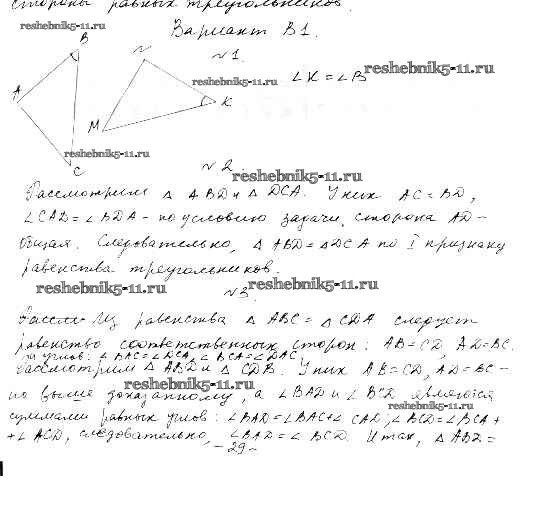 стороны равных треугольников.
reshebnik5-11.ru
Вариант В1.
B
N
№1.
∠K = ∠B
reshebnik5-11.ru
reshebnik5-11.ru
A
K
M
reshebnik5-11.ru
C
№2.
reshebnik5-11.ru
Рассмотрим △ ABD и △ DCA. У них AC = BD,
∠CAD = ∠BDA – по условию задачи, сторона AD –
общая. Следовательно, △ ABD = △DCA по I признаку
равенства треугольников.
reshebnik5-11.ru
№3
reshebnik5-11.ru
Из равенства △ ABC = △ CDA следует
равенство соответственных сторон: AB = CD, AD = BC.
и углов: ∠BAC = ∠DCA, ∠BCA = ∠DAC,
Рассмотрим △ ABD и △ CDB. У них AB = CD, AD = BC –
reshebnik5-11.ru
по выше доказанному, а ∠BAD и ∠BCD являются
reshebnik5-11.ru
суммами равных углов: ∠BAD = ∠BAC + ∠CAD, ∠BCD = ∠BCA +
+ ∠ACD, следовательно, ∠BAD = ∠BCD. Итак, △ ABD =
reshebnik5-11.ru
– 29 –